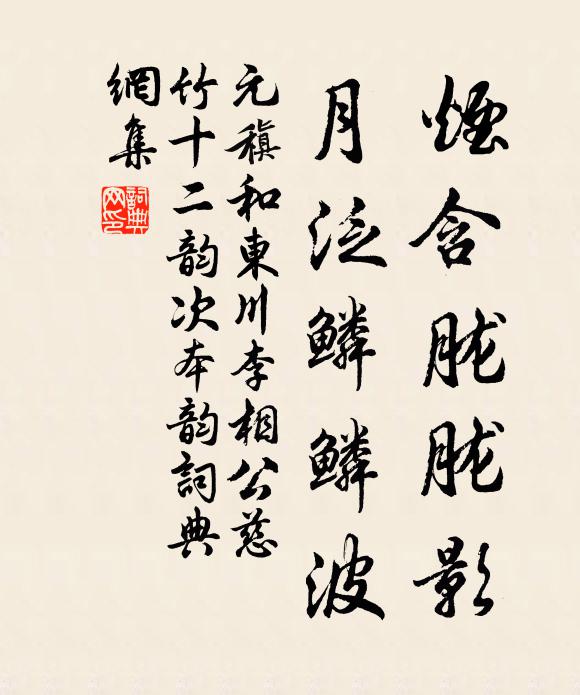 煙含朧朧影
月泛鱗鱗波
元稹和東川李相公慈
竹十二韵次本韵詞典
網集
詞典网印